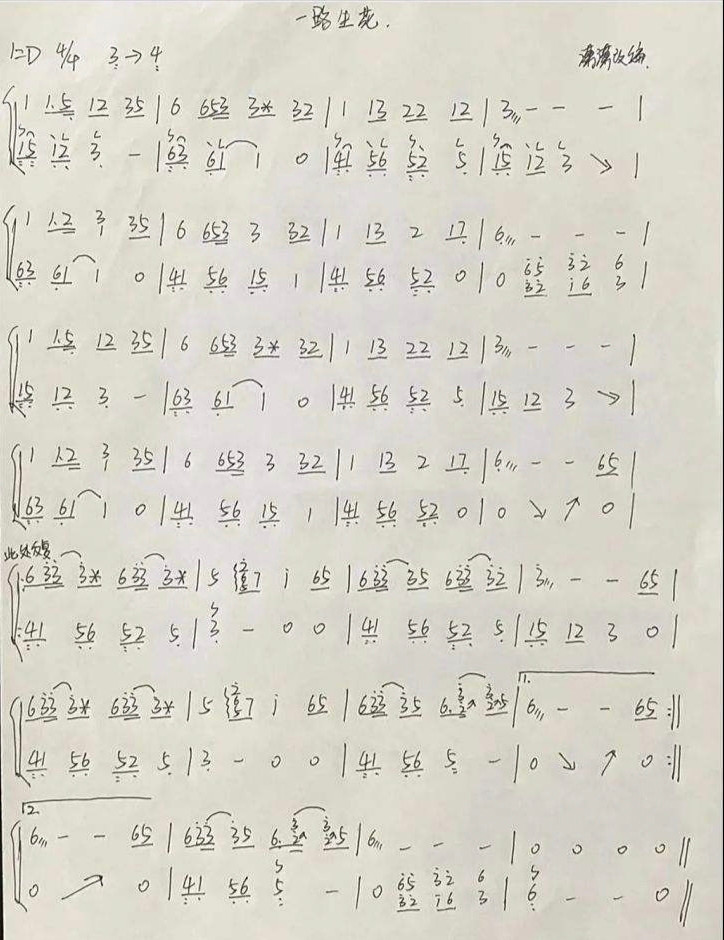 一路生花.
1=D 4/4 3→4 漓漓改编
1 1.5 12 35 | 6 653 3* 32 | 1 13 22 12 | 3,,, - - - |
15 12 3 - | 63 61 1 0 | 41 56 52 5 | 15 12 3 ↘ |
1 1.2 3 35 | 6 653 3 32 | 1 13 2 17 | 6,,, - - - |
63 61 1 0 | 41 56 15 1 | 41 56 52 0 | 0 65 32 6 |
32 16 3
1 1.5 12 35 | 6 653 3* 32 | 1 13 22 12 | 3,,, - - - |
15 12 3 - | 63 61 1 0 | 41 56 52 5 | 15 12 3 ↘ |
1 1.2 3 35 | 6 653 3 32 | 1 13 2 17 | 6,,, - - 65 |
63 61 1 0 | 41 56 15 1 | 41 56 52 0 | 0 ↘ ↗ 0 |
此处反复
633 3* 633 3* | 5 7 i 65 | 633 35 633 32 | 3,,, - - 65 |
41 56 52 5 | 3 - 0 0 | 41 56 52 5 | 15 12 3 0 |
1.
633 3* 633 3* | 5 7 i 65 | 633 35 6. 5 | 6,,, - - 65 :||
41 56 52 5 | 3 - 0 0 | 41 56 5 - | 0 ↘ ↗ 0 :||
2.
6,,, - - 65 | 633 35 6. 5 | 6,,, - - - | 0 0 0 0 ||
0 ↗ 0 | 41 56 5 - | 0 65 32 6 | 6 - - 0 ||
32 16 3